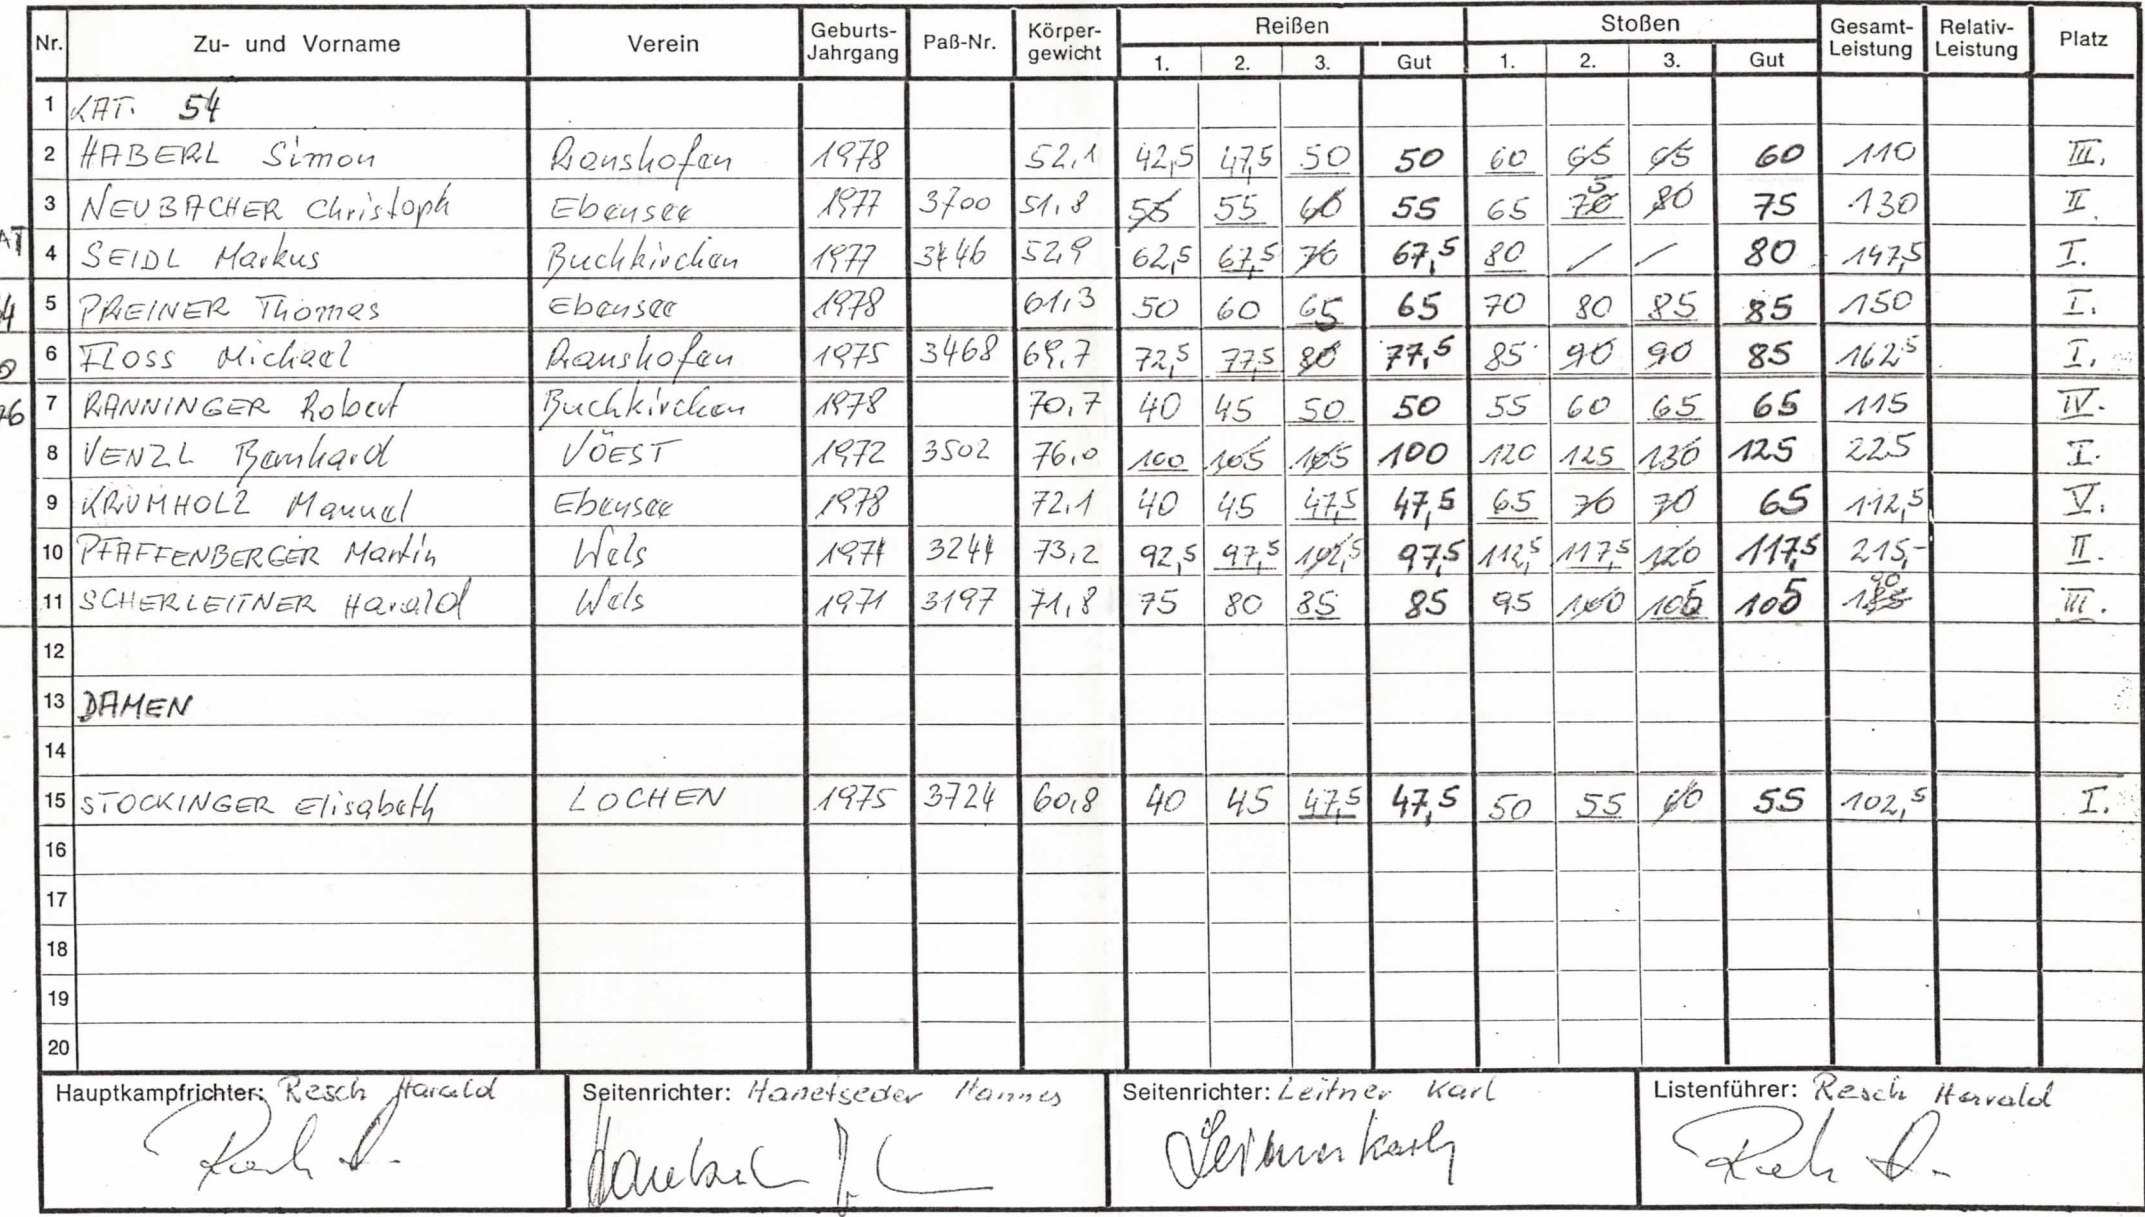 Nr. Zu- und Vorname Verein Geburts-Jahrgang Paß-Nr. Körper-gewicht Reißen Stoßen Gesamt-Leistung Relativ-Leistung Platz
1. 2. 3. Gut 1. 2. 3. Gut
1 KAT. 54
2 HABERL Simon Ranshofen 1978 52,1 42,5 47,5 50 50 60 65 65 60 110 III.
3 NEUBACHER Christoph Ebensee 1977 3700 51,8 55 55 60 55 65 75 80 75 130 II.
AT
4 SEIDL Markus Buchkirchen 1977 3446 52,9 62,5 67,5 70 67,5 80 / / 80 147,5 I.
5 PREINER Thomas Ebensee 1978 61,3 50 60 65 65 70 80 85 85 150 I.
6 FLOSS Michael Ranshofen 1975 3468 69,7 72,5 77,5 80 77,5 85 90 90 85 162,5 I.
76
7 RANNINGER Robert Buchkirchen 1978 70,7 40 45 50 50 55 60 65 65 115 IV.
8 VENZL Bernhard VÖEST 1972 3502 76,0 100 105 105 100 120 125 130 125 225 I.
9 KRUMHOLZ Manuel Ebensee 1978 72,1 40 45 47,5 47,5 65 70 70 65 112,5 V.
10 PFAFFENBERGER Martin Wels 1971 3244 73,2 92,5 97,5 102,5 97,5 112,5 117,5 120 117,5 215,- II.
11 SCHERLEITNER Harald Wels 1971 3197 71,8 75 80 85 85 95 100 105 105 190 III.
12
13 DAMEN
14
15 STOCKINGER Elisabeth LOCHEN 1975 3724 60,8 40 45 47,5 47,5 50 55 60 55 102,5 I.
16
17
18
19
20
Hauptkampfrichter: Resch Harald Seitenrichter: Hanetseder Hannes Seitenrichter: Leitner Karl Listenführer: Resch Harald